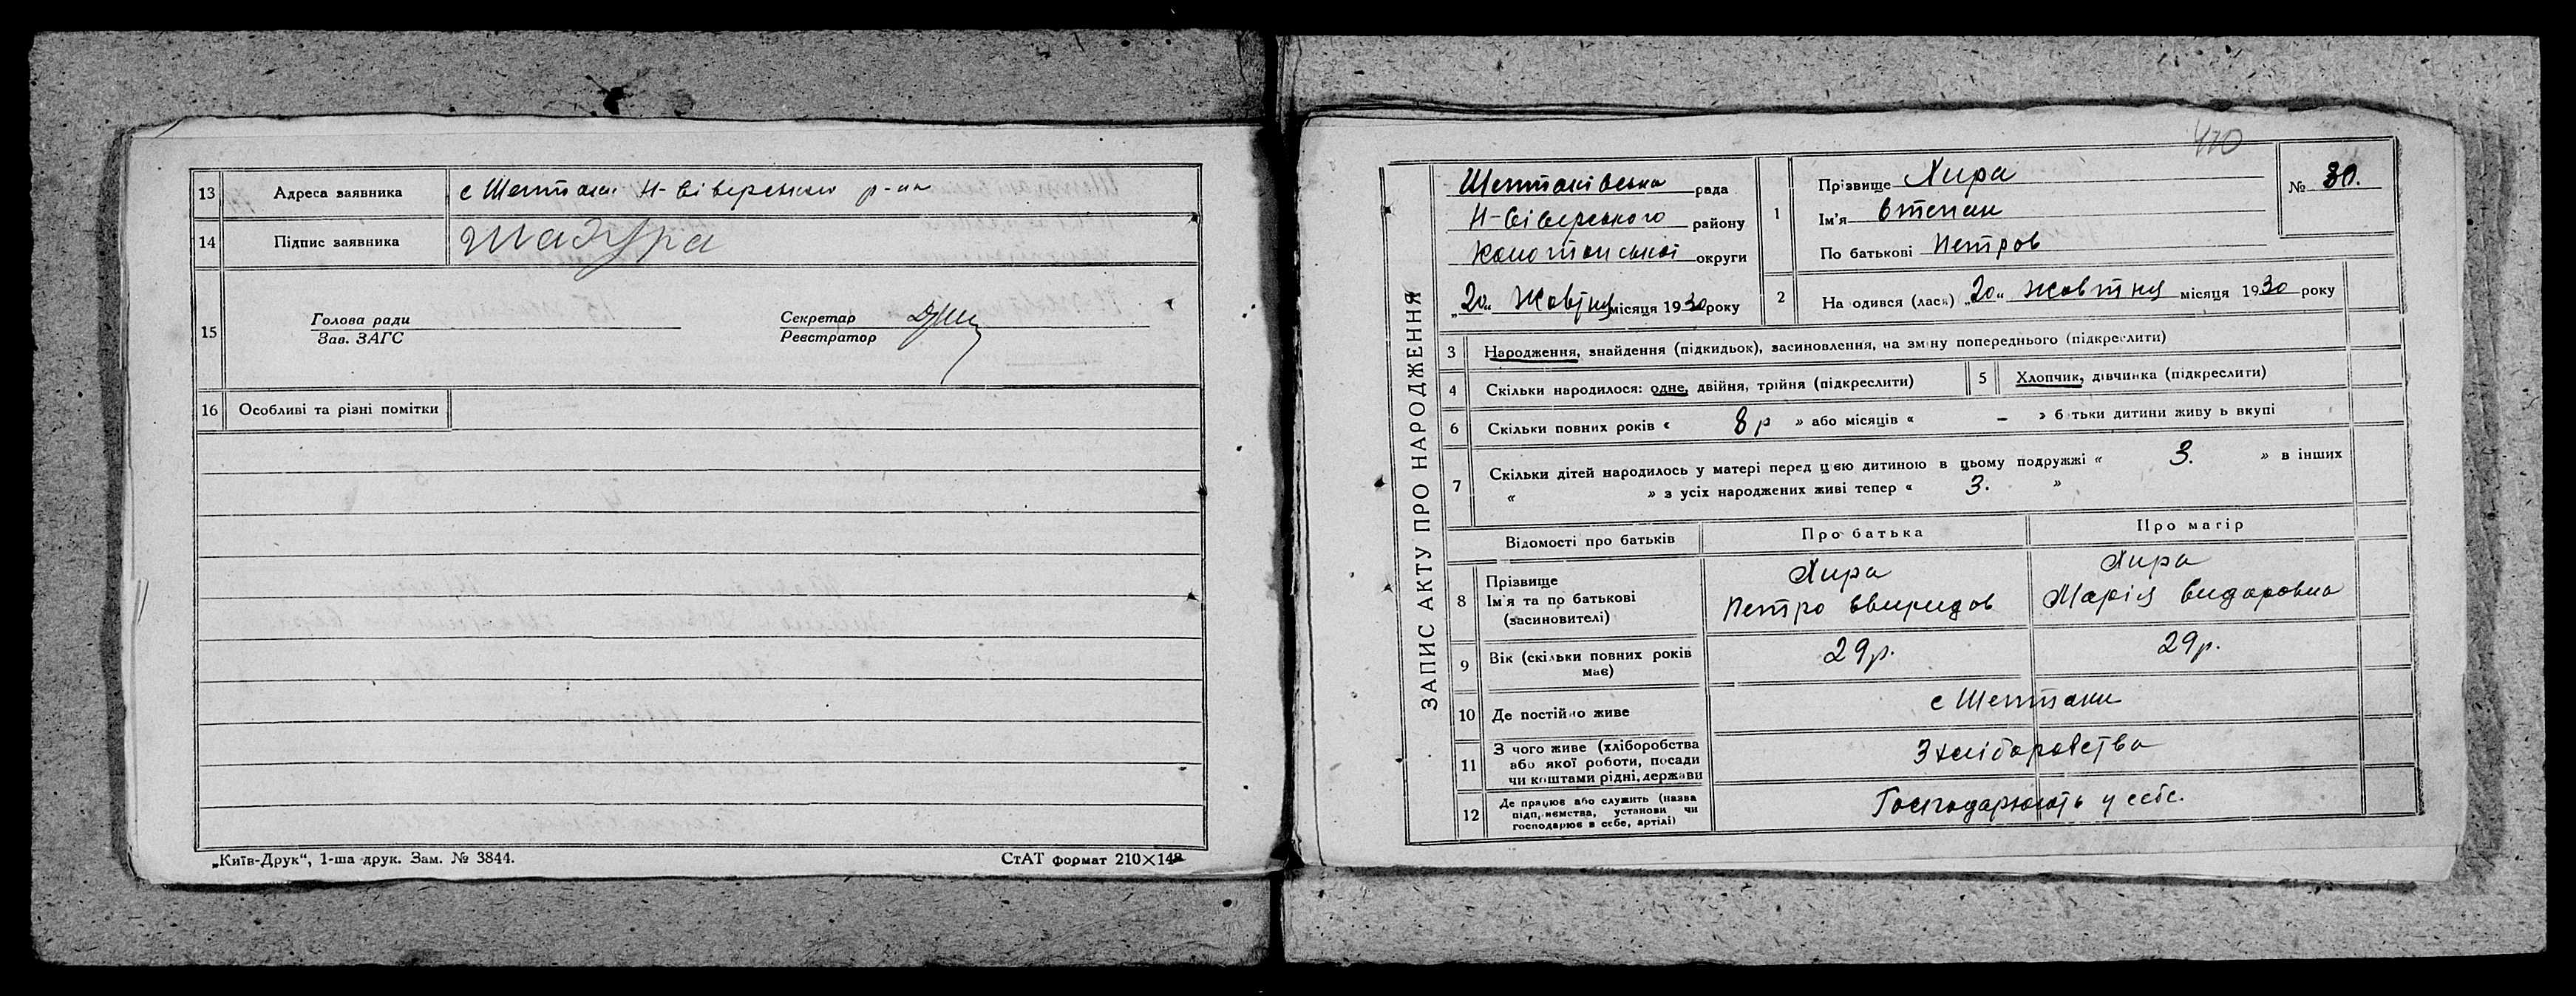 13 Адреса заявника с Шептаки Н-Сіверського р-на
14 Підпис заявника Шадура
15 Голова ради
Зав. ЗАГС
Секретар
Реєстратор
16 Особливі та різні помітки
„Київ-Друк“, 1-ша друк. Зам. № 3844.
СтАТ формат 210×148
470
ЗАПИС АКТУ ПРО НАРОДЖЕННЯ
Шептаківська рада
Н-Сіверського району
Конотопської округи
„20“ Жовтня місяця 1930 року
1 Прізвище Хира
Ім'я Степан
По батькові Петров
№ 30.
2 На одився (лася) „20“ Жовтня місяця 1930 року
3 Народження, знайдення (підкидьок), засиновлення, на зміну попереднього (підкреслити)
4 Скільки народилося: одне, двійня, трійня (підкреслити)
5 Хлопчик, дівчинка (підкреслити)
6 Скільки повних років « 8 р » або місяців « – » б тьки дитини живу ь вкупі
7 Скільки дітей народилось у матері перед цією дитиною в цьому подружжі « 3. » в інших
« » з усіх народжених живі тепер « 3. »
Відомості про батьків Про батька Про матір
8 Прізвище
Ім'я та по батькові
(засиновителі)
Хира
Петро Свиридов
Хира
Марія Сидоровна
9 Вік (скільки повних років
має)
29р.
29р.
10 Де постійно живе с Шептаки
11 З чого живе (хліборобства
або якої роботи, посади
чи коштами рідні, держави
З хліборобства
12 Де працює або служить (назва
підп,иємства, установи чи
господарює в себе, артілі)
Господарюють у себе.